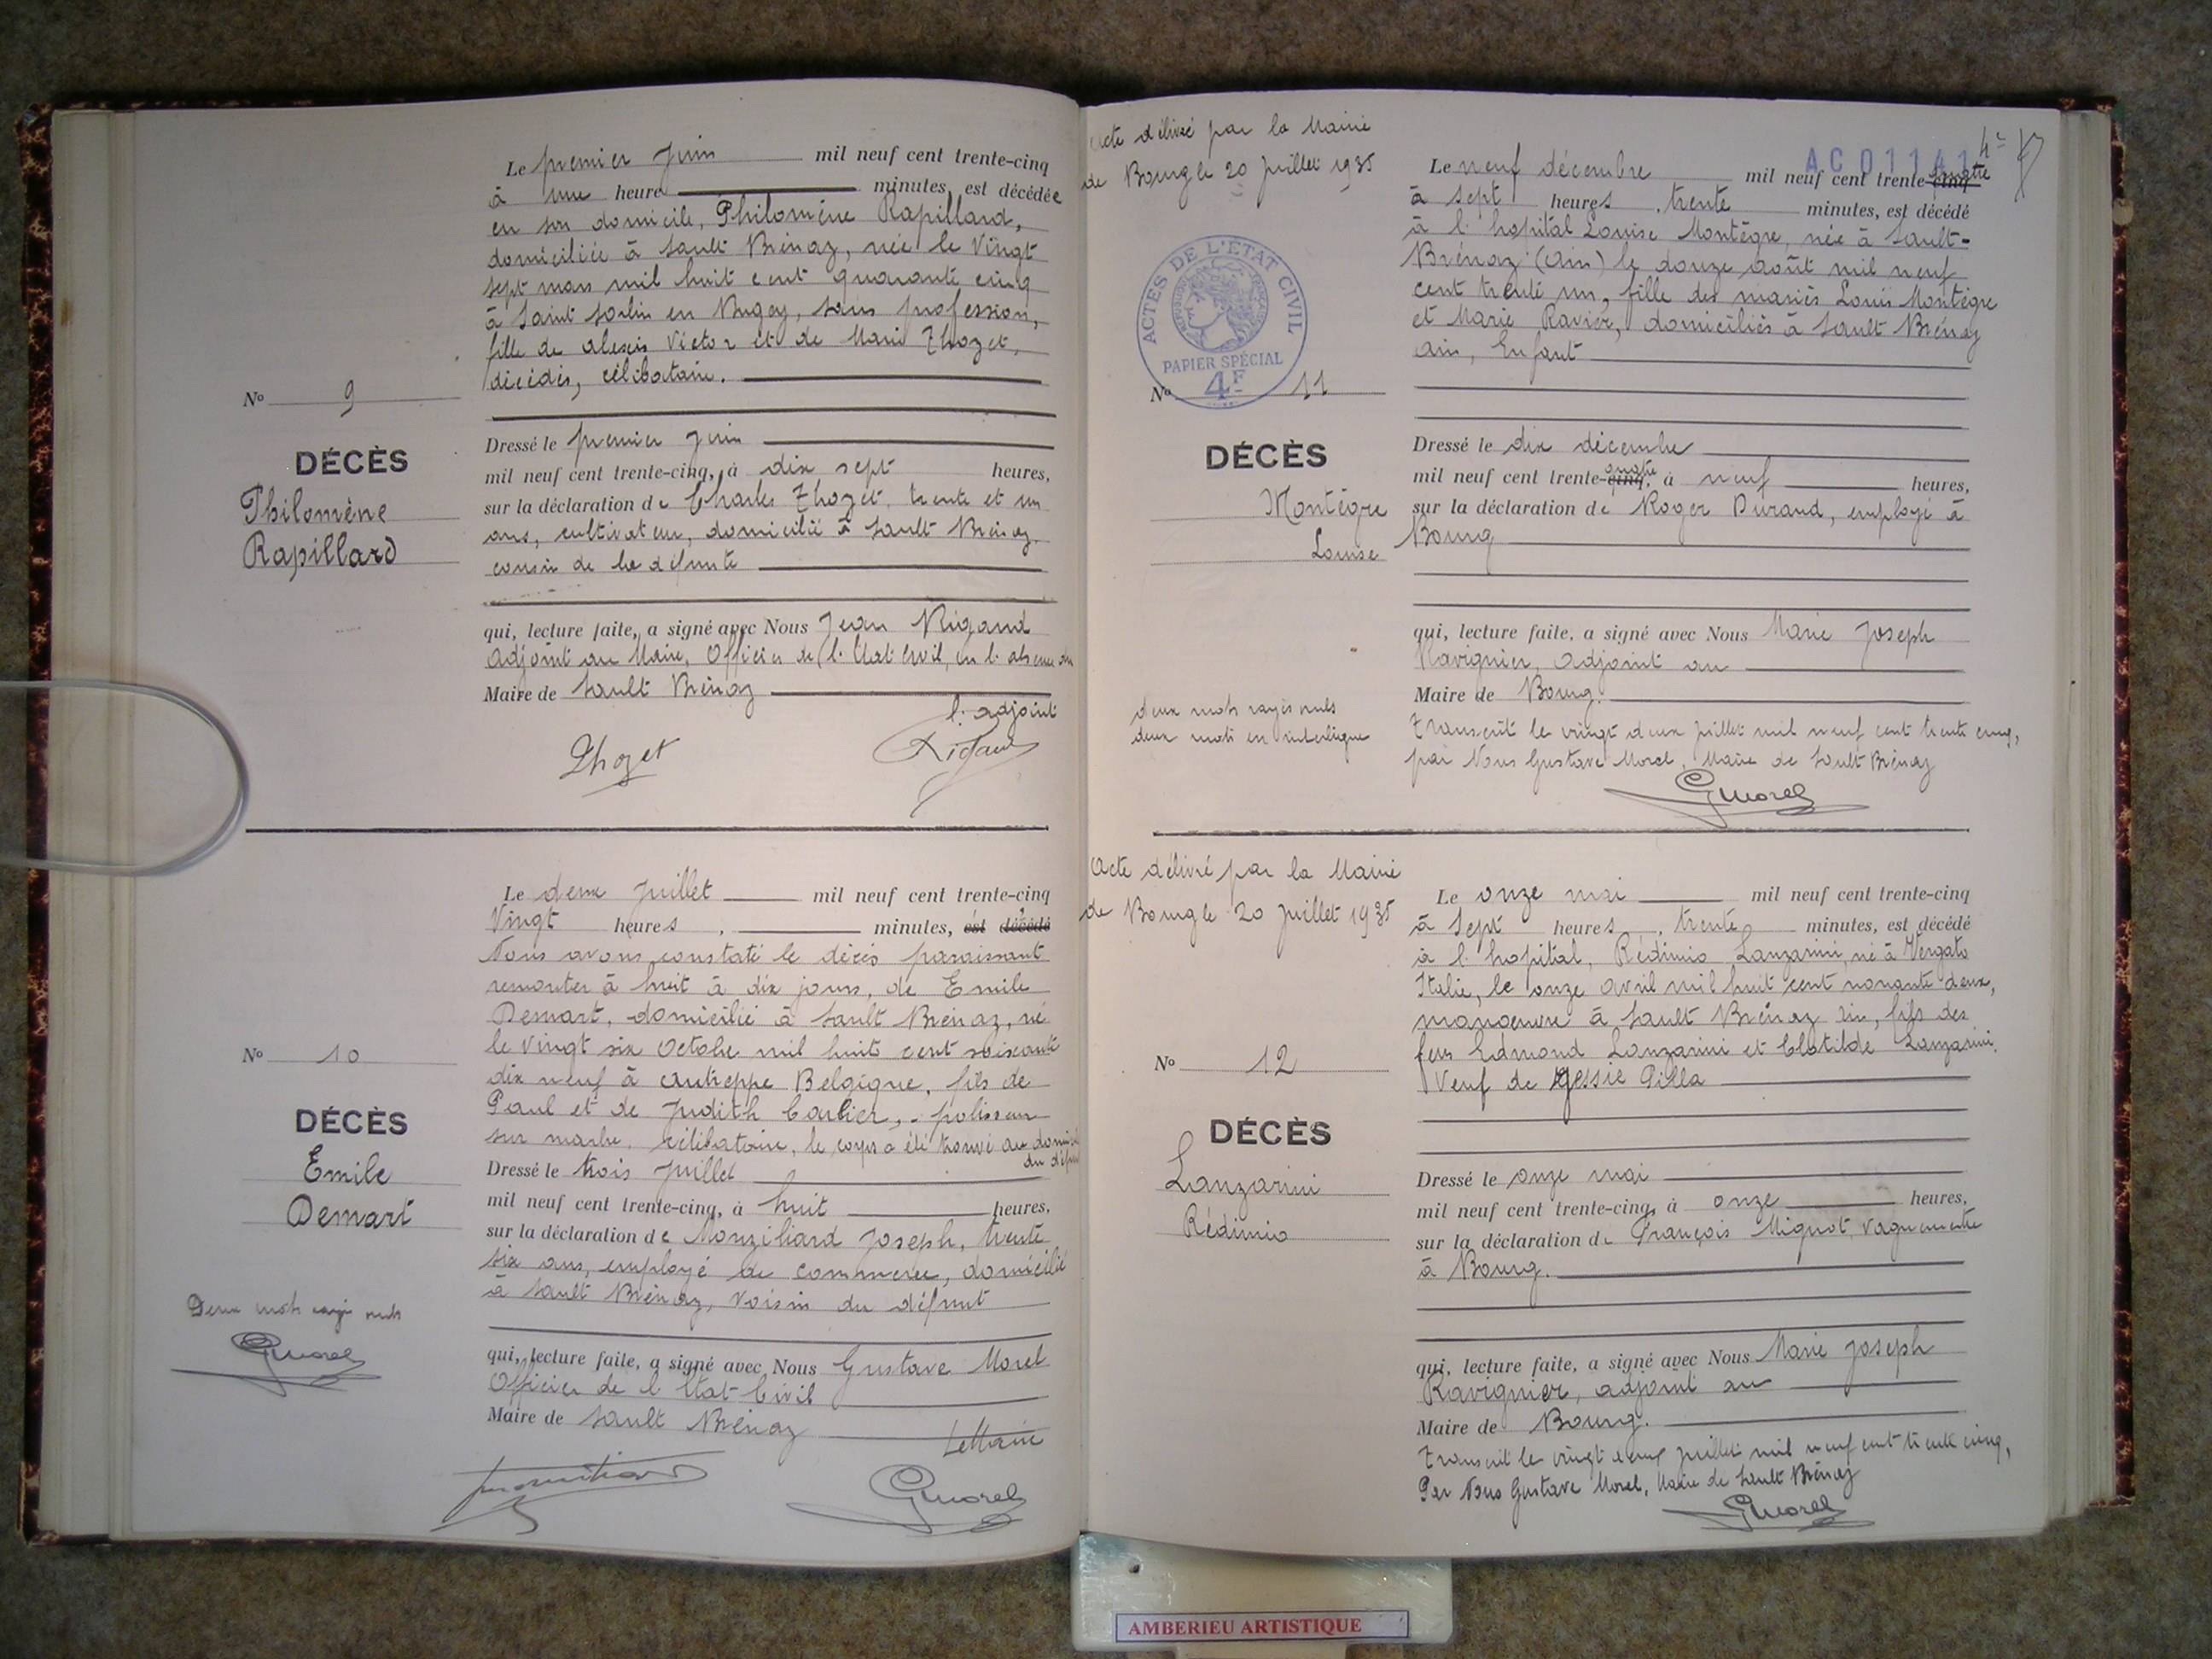 Le premier Juin mil neuf cent trente-cinq
à une heure minutes, est décédée
en son domicile, Philomène Rapillard,
domiciliée à Sault Brénaz, née le Vingt
sept mars mil huit cent quarante cinq
à Saint Sorlin en Bugey, sans profession,
fille de Alexis Victor et de Marie Thozet,
décédés, célibataire.
No 9
DÉCÈS
Philomène
Rapillard
Dressé le premier Juin
mil neuf cent trente-cinq, à dix sept heures,
sur la déclaration de Charles Thozet, trente et un
ans, cultivateur, domicilié à Sault Brénaz,
cousin de la défunte
qui, lecture faite, a signé avec Nous Jean Rigaud
Adjoint au Maire, Officier de l'Etat Civil, en l'absence du
Maire de Sault Brénaz
l'adjoint
Thozet Rigaud
Le deux Juillet mil neuf cent trente-cinq
Vingt heures, minutes, est décédé
Nous avons constaté le décès paraissant
remonter à huit à dix jours, de Emile
Demart, domicilié à Sault Brénaz, né
le vingt six Octobre mil huit cent soixante
dix neuf à Autreppe Belgique, fils de
Paul et de Judith Carlier, polisseur
sur marbre, célibataire, le corps a été trouvé au domicile
du défunt
No 10
DÉCÈS
Emile
Demart
Dressé le trois Juillet
mil neuf cent trente-cinq, à huit heures,
sur la déclaration de Monziliard Joseph, trente
six ans, employé de commerce, domicilié
à Sault Brénaz, voisin du défunt
Deux mots rayés nuls
GMorel
qui, lecture faite, a signé avec Nous Gustave Morel
Officier de l'Etat-Civil
Maire de Sault Brénaz
Le Maire
GMorel
Acte délivré par la Mairie
de Bourg le 20 Juillet 1935
AC01141
4e
Le neuf décembre mil neuf cent trente-cinq quatre
à sept heures, trente minutes, est décédé
à l'hopital Louise Montègre, née à Sault-
Brénaz (Ain) le douze août mil neuf
cent trente un, fille des mariés Louis Montègre
et Marie Ravier, domiciliés à Sault Brénaz
Ain, Enfant
ACTES DE L'ETAT CIVIL
PAPIER SPÉCIAL
4F
No 11
DÉCÈS
Montègre
Louise
Dressé le dix décembre
mil neuf cent trente-cinq, quatre à neuf heures,
sur la déclaration de Roger Durand, employé à
Bourg
qui, lecture faite, a signé avec Nous Marie Joseph
Ravignier, Adjoint au
Maire de Bourg.
deux mots rayés nuls
deux mots en interligne
Transcrit le vingt deux Juillet mil neuf cent trente cinq,
par Nous Gustave Morel, Maire de Sault Brénaz
GMorel
Acte délivré par la Mairie
de Bourg le 20 Juillet 1935
Le onze mai mil neuf cent trente-cinq
à Sept heures, trente minutes, est décédé
à l'hopital, Rédimio Lanzarini, né à Vergato
Italie, le onze avril mil huit cent nonante deux,
manoeuvre à Sault Brénaz Ain, fils des
feus Edmond Lanzarini et Clotilde Lanzarini,
Veuf de Gessie Pilla
No 12
DÉCÈS
Lanzarini
Rédimio
Dressé le onze mai
mil neuf cent trente-cinq, à onze heures,
sur la déclaration de François Mignot, vaguemestre
à Bourg.
qui, lecture faite, a signé avec Nous Marie Joseph
Ravignier, adjoint au
Maire de Bourg.
Transcrit le vingt deux juillet mil neuf cent trente cinq,
Par Nous Gustave Morel, Maire de Sault Brénaz
GMorel
AMBERIEU ARTISTIQUE